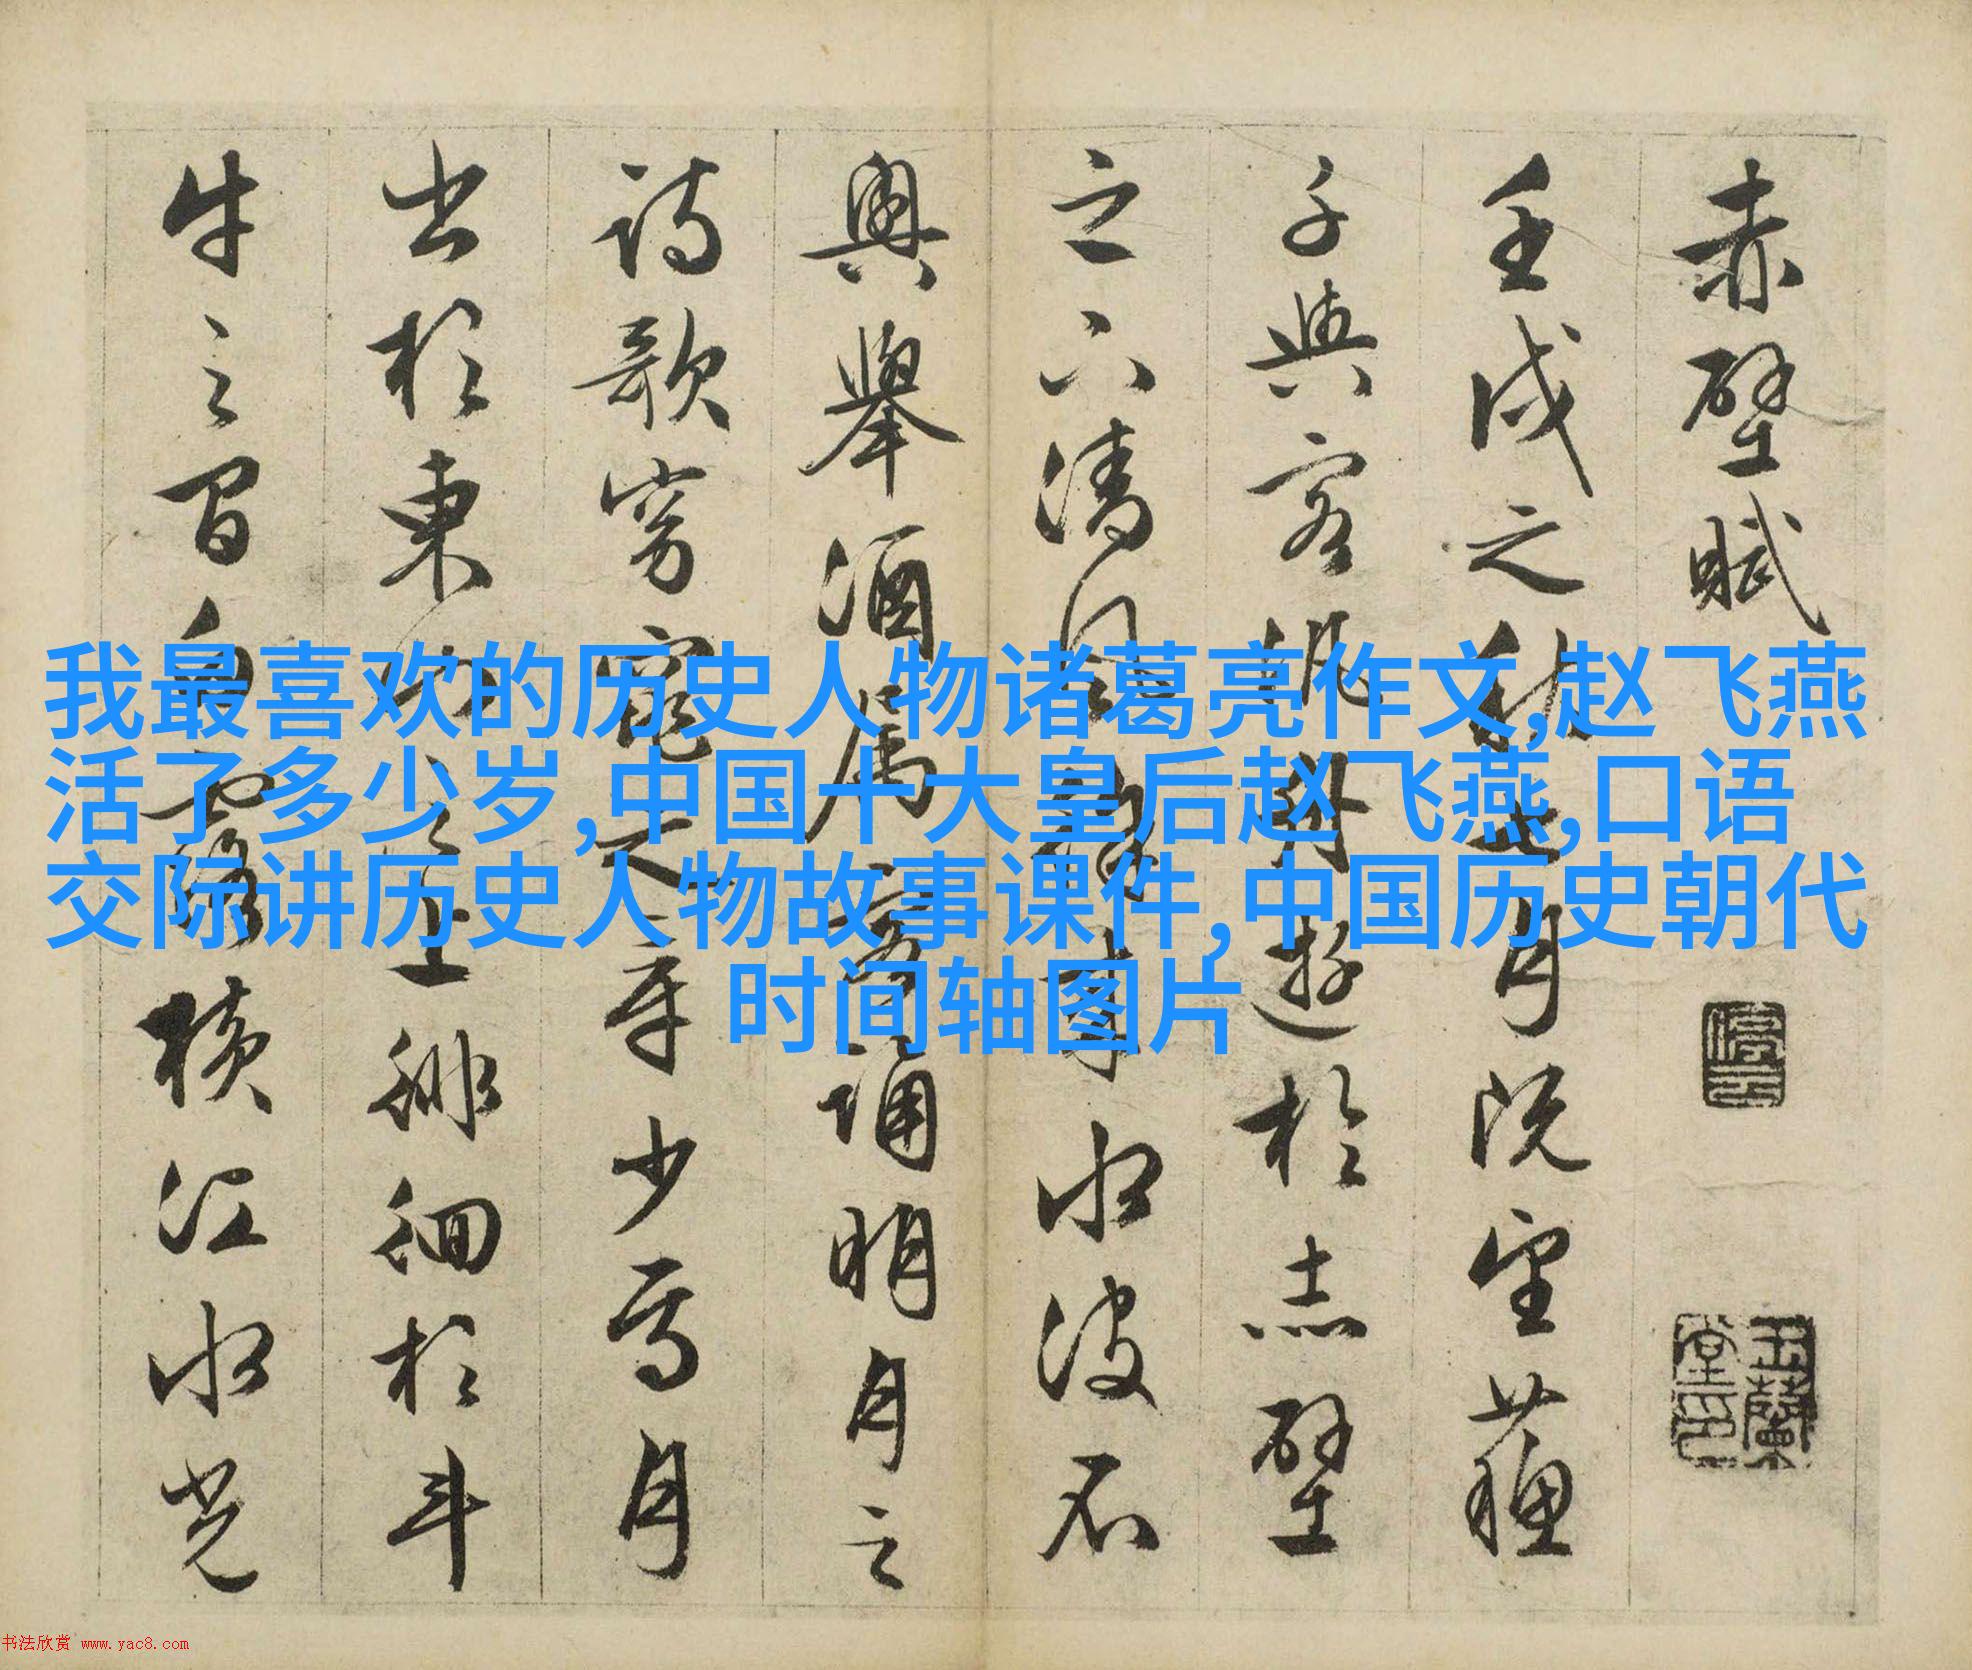 赤壁賦
壬戌之秋七月既望蘇
子與客汎舟遊於赤壁
之下清風徐来水波不
興舉酒屬客誦明月之
詩歌窈窕之章少焉月
出於東山之上徘徊於斗
牛之間白露橫江水光
停雲
玉蘭堂印
我最喜欢的历史人物诸葛亮作文,赵飞燕
活了多少岁,中国十大皇后赵飞燕,口语
交际讲历史人物故事课件,中国历史朝代
时间轴图片
书法欣赏 www.yac8.com